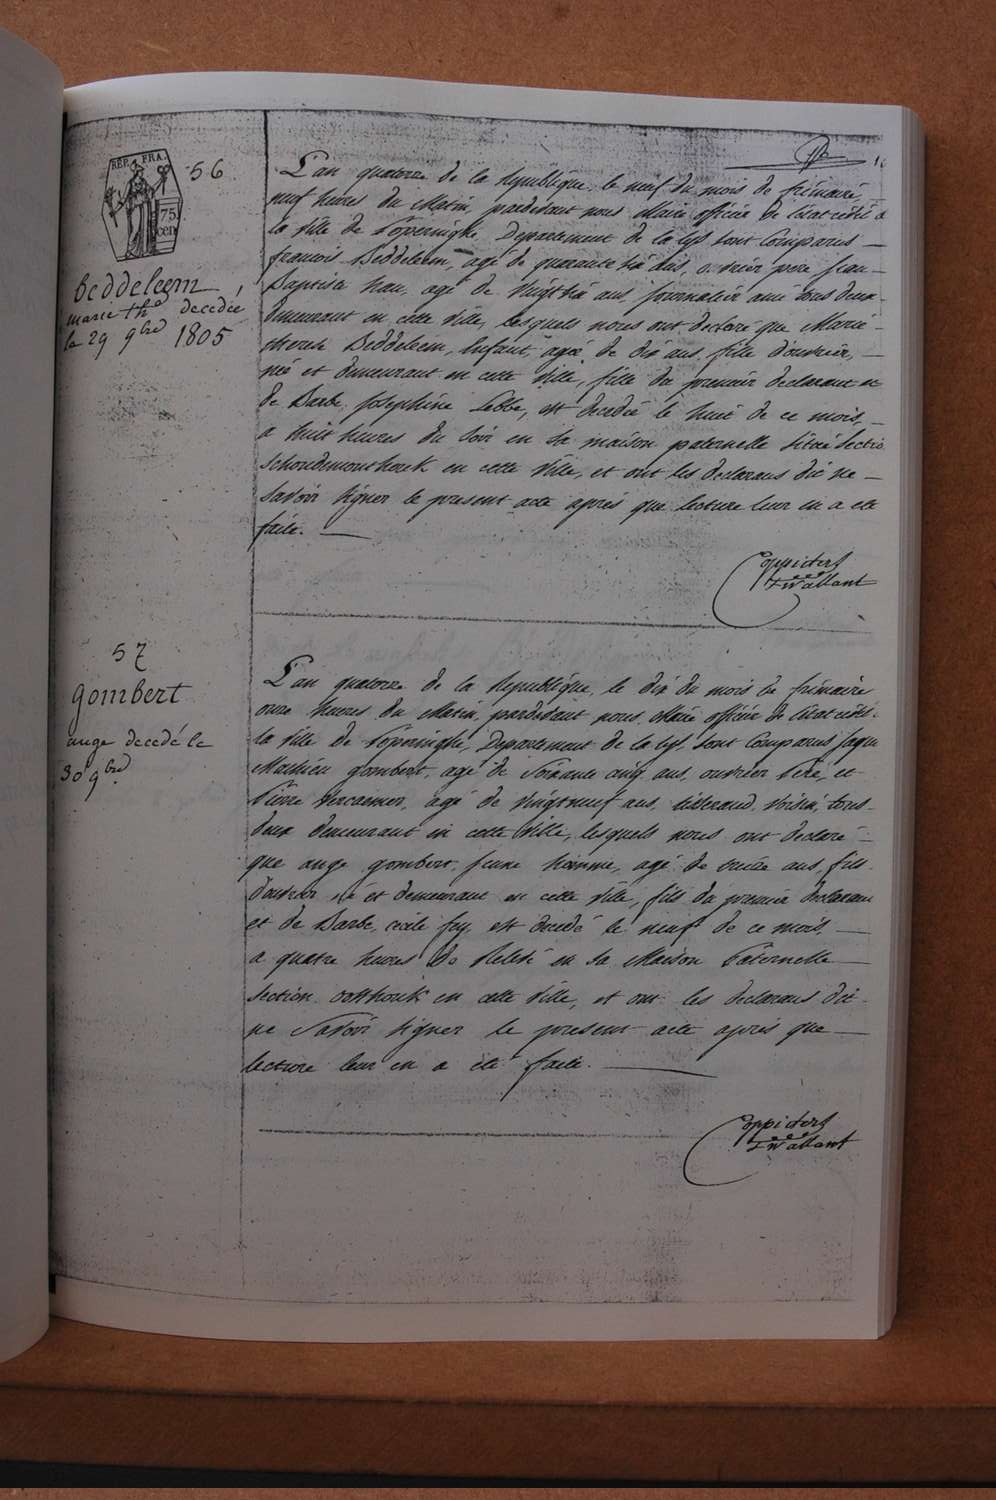 REP. FRA.
75
cen
56
beddeleem
marie the decedée
le 29 9bre 1805
L'an quatorze de la republique, le neuf du mois de frimaire
neuf heures du Matin, pardevant nous Maire officier de l'état civil d
la ville de Poperinghe, Departement de la lys, sont Comparus
francois Beddeleem, agé de quarante six ans, ouvrier, pere Jean
Baptiste hau, agé de vingt six ans, journalier ami tous deux
demeurant en cette ville, lesquels nous ont declaré que Marie
therese Beddeleem, enfant, agée de dix ans, fille d'ouvrier,
née et demeurant en cette ville, fille du premier declarant et
de Barbe Josephine Lebbe, est decedée le huit de ce mois,
a huit heures du soir en sa maison paternelle située sectio
schoudemonthouk en cette ville, et ont les declarans dit ne
savoir signer le present acte après que lecture leur en a eté
faite.
Coppieters
t'wallant
57
gombert
ange decedé le
30 9bre
L'an quatorze de la republique, le dix du mois de frimaire
onze heures du Matin, pardevant nous Maire officier de l'état civil
la ville de Poperinghe, Departement de la lys, sont Comparus Jaque
Mathieu gombert, agé de soixante cinq ans, ouvrier Pere, et
Pierre Vercaemer, agé de vingt neuf ans, tisserand, voisin, tous
deux demeurant en cette ville, lesquels nous ont declaré
que ange gombert, jeune homme, agé de ans, fils
d'ouvrier né et demeurant en cette ville, fils du premier declarant
et de Barbe cecile fey, est decedé le neuf de ce mois,
a quatre heures de Relevé en sa Maison Paternelle
section oosthouk en cette ville, et ont les declarans dit
ne savoir signer le present acte après que
lecture leur en a eté faite.
Coppieters
t'wallant